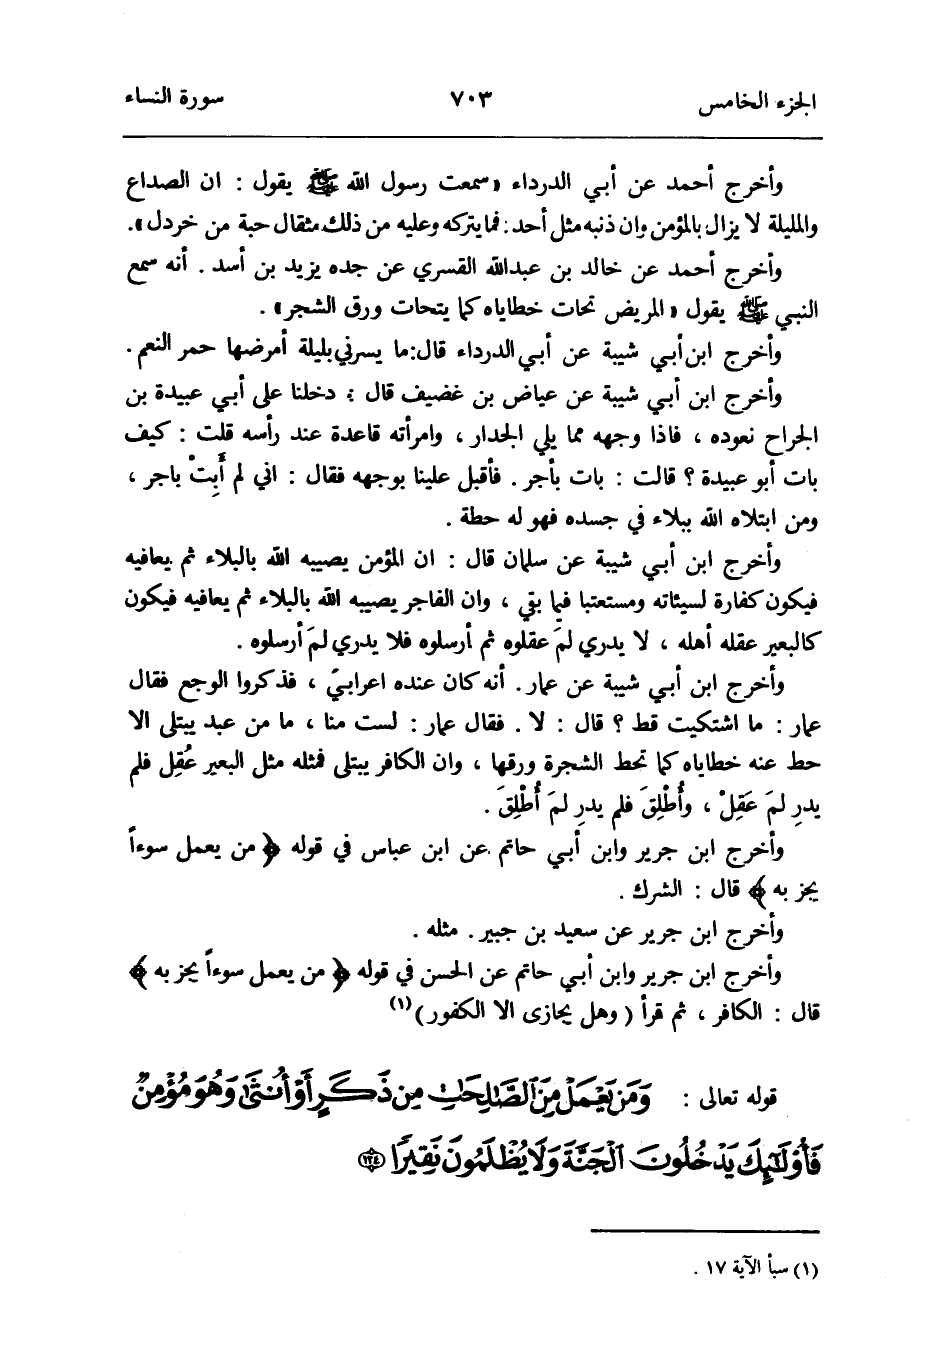 الجزء الخامس ٧٠٣ سورة النساء
وأخرج أحمد عن أبي الدرداء «سمعت رسول الله ﷺ يقول : ان الصداع
والمليلة لا يزال بالمؤمن وان ذنبه مثل أحد : فما يتركه وعليه من ذلك مثقال حبة من خردل».
وأخرج أحمد عن خالد بن عبدالله القسري عن جده يزيد بن أسد . أنه سمع
النبي ﷺ يقول «المريض تحات خطاياه كما يتحات ورق الشجر» .
وأخرج ابن أبي شيبة عن أبي الدرداء قال: ما يسرني بليلة أمرضها حمر النعم .
وأخرج ابن أبي شيبة عن عياض بن غضيف قال : دخلنا على أبي عبيدة بن
الجراح نعوده ، فاذا وجهه مما يلي الجدار ، وامرأته قاعدة عند رأسه قلت : كيف
بات أبو عبيدة ؟ قالت : بات بأجر . فأقبل علينا بوجهه فقال : اني لم أَبِتْ باجر ،
ومن ابتلاه الله ببلاء في جسده فهو له حطة .
وأخرج ابن أبي شيبة عن سلمان قال : ان المؤمن يصيبه الله بالبلاء ثم يعافيه
فيكون كفارة لسيئاته ومستعتبا فيما بقي ، وان الفاجر يصيبه الله بالبلاء ثم يعافيه فيكون
كالبعير عقله أهله ، لا يدري لمَ عقلوه ثم أرسلوه فلا يدري لمَ أرسلوه .
وأخرج ابن أبي شيبة عن عمار . أنه كان عنده اعرابيّ ، فذكروا الوجع فقال
عمار : ما اشتكيت قط ؟ قال : لا . فقال عمار : لست منا ، ما من عبد يبتلى الا
حط عنه خطاياه كما تحط الشجرة ورقها ، وان الكافر يبتلى فمثله مثل البعير عُقِل فلم
يدرِ لمَ عَقِلْ ، وأُطْلِقَ فلم يدرِ لمَ أُطْلِقَ .
وأخرج ابن جرير وابن أبي حاتم عن ابن عباس في قوله ﴿ من يعمل سوءاً
يجز به ﴾ قال : الشرك .
وأخرج ابن جرير عن سعيد بن جبير . مثله .
وأخرج ابن جرير وابن أبي حاتم عن الحسن في قوله ﴿ من يعمل سوءاً يجز به ﴾
قال : الكافر ، ثم قرأ ( وهل يجازى الا الكفور )(١)
قوله تعالى : وَمَن يَعْمَلْ مِنَ ٱلصَّٰلِحَٰتِ مِن ذَكَرٍ أَوْ أُنثَىٰ وَهُوَ مُؤْمِنٌ
فَأُوْلَٰٓئِكَ يَدْخُلُونَ ٱلْجَنَّةَ وَلَا يُظْلَمُونَ نَقِيرًا ﴿١٢٤﴾
(١) سبأ الآية ١٧ .